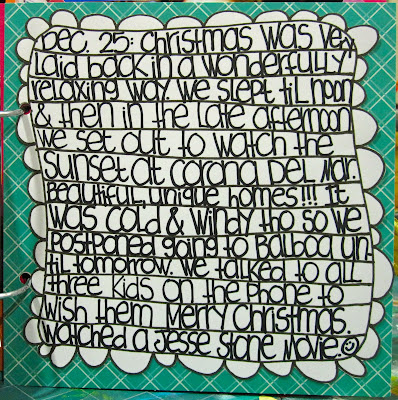 Dec. 25: Christmas was very
laid back in a wonderfully
relaxing way. We slept til noon
& then in the late afternoon
we set out to watch the
sunset at Corona Del Mar.
Beautiful, unique homes!!! It
was cold & windy tho so we
postponed going to Balboa un-
til tomorrow. We talked to all
three kids on the phone to
wish them Merry Christmas.
Watched a Jesse Stone Movie.☺